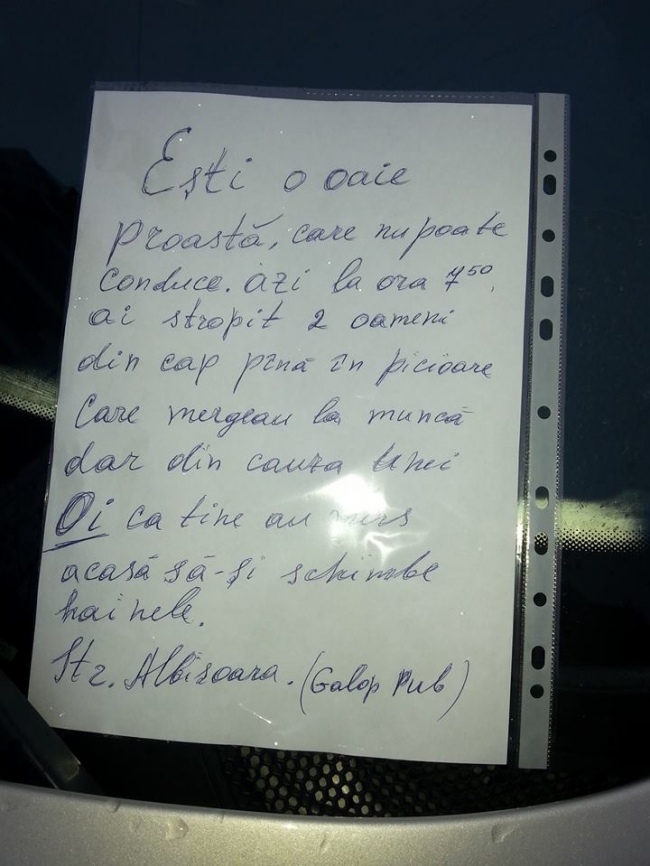 Ești o oaie
proastă, care nu poate
conduce. azi la ora 7⁵⁰,
ai stropit 2 oameni
din cap pînă în picioare
care mergeau la muncă
dar din cauza unei
Oi ca tine au mers
acasă să-și schimbe
hainele.
Str. Albisoara. (Galop Pub)